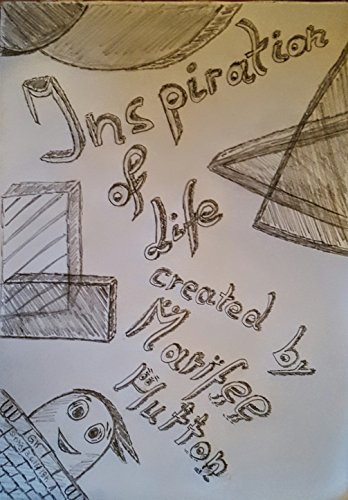 Inspiration
of
Life
created by
Marifee
Hutton